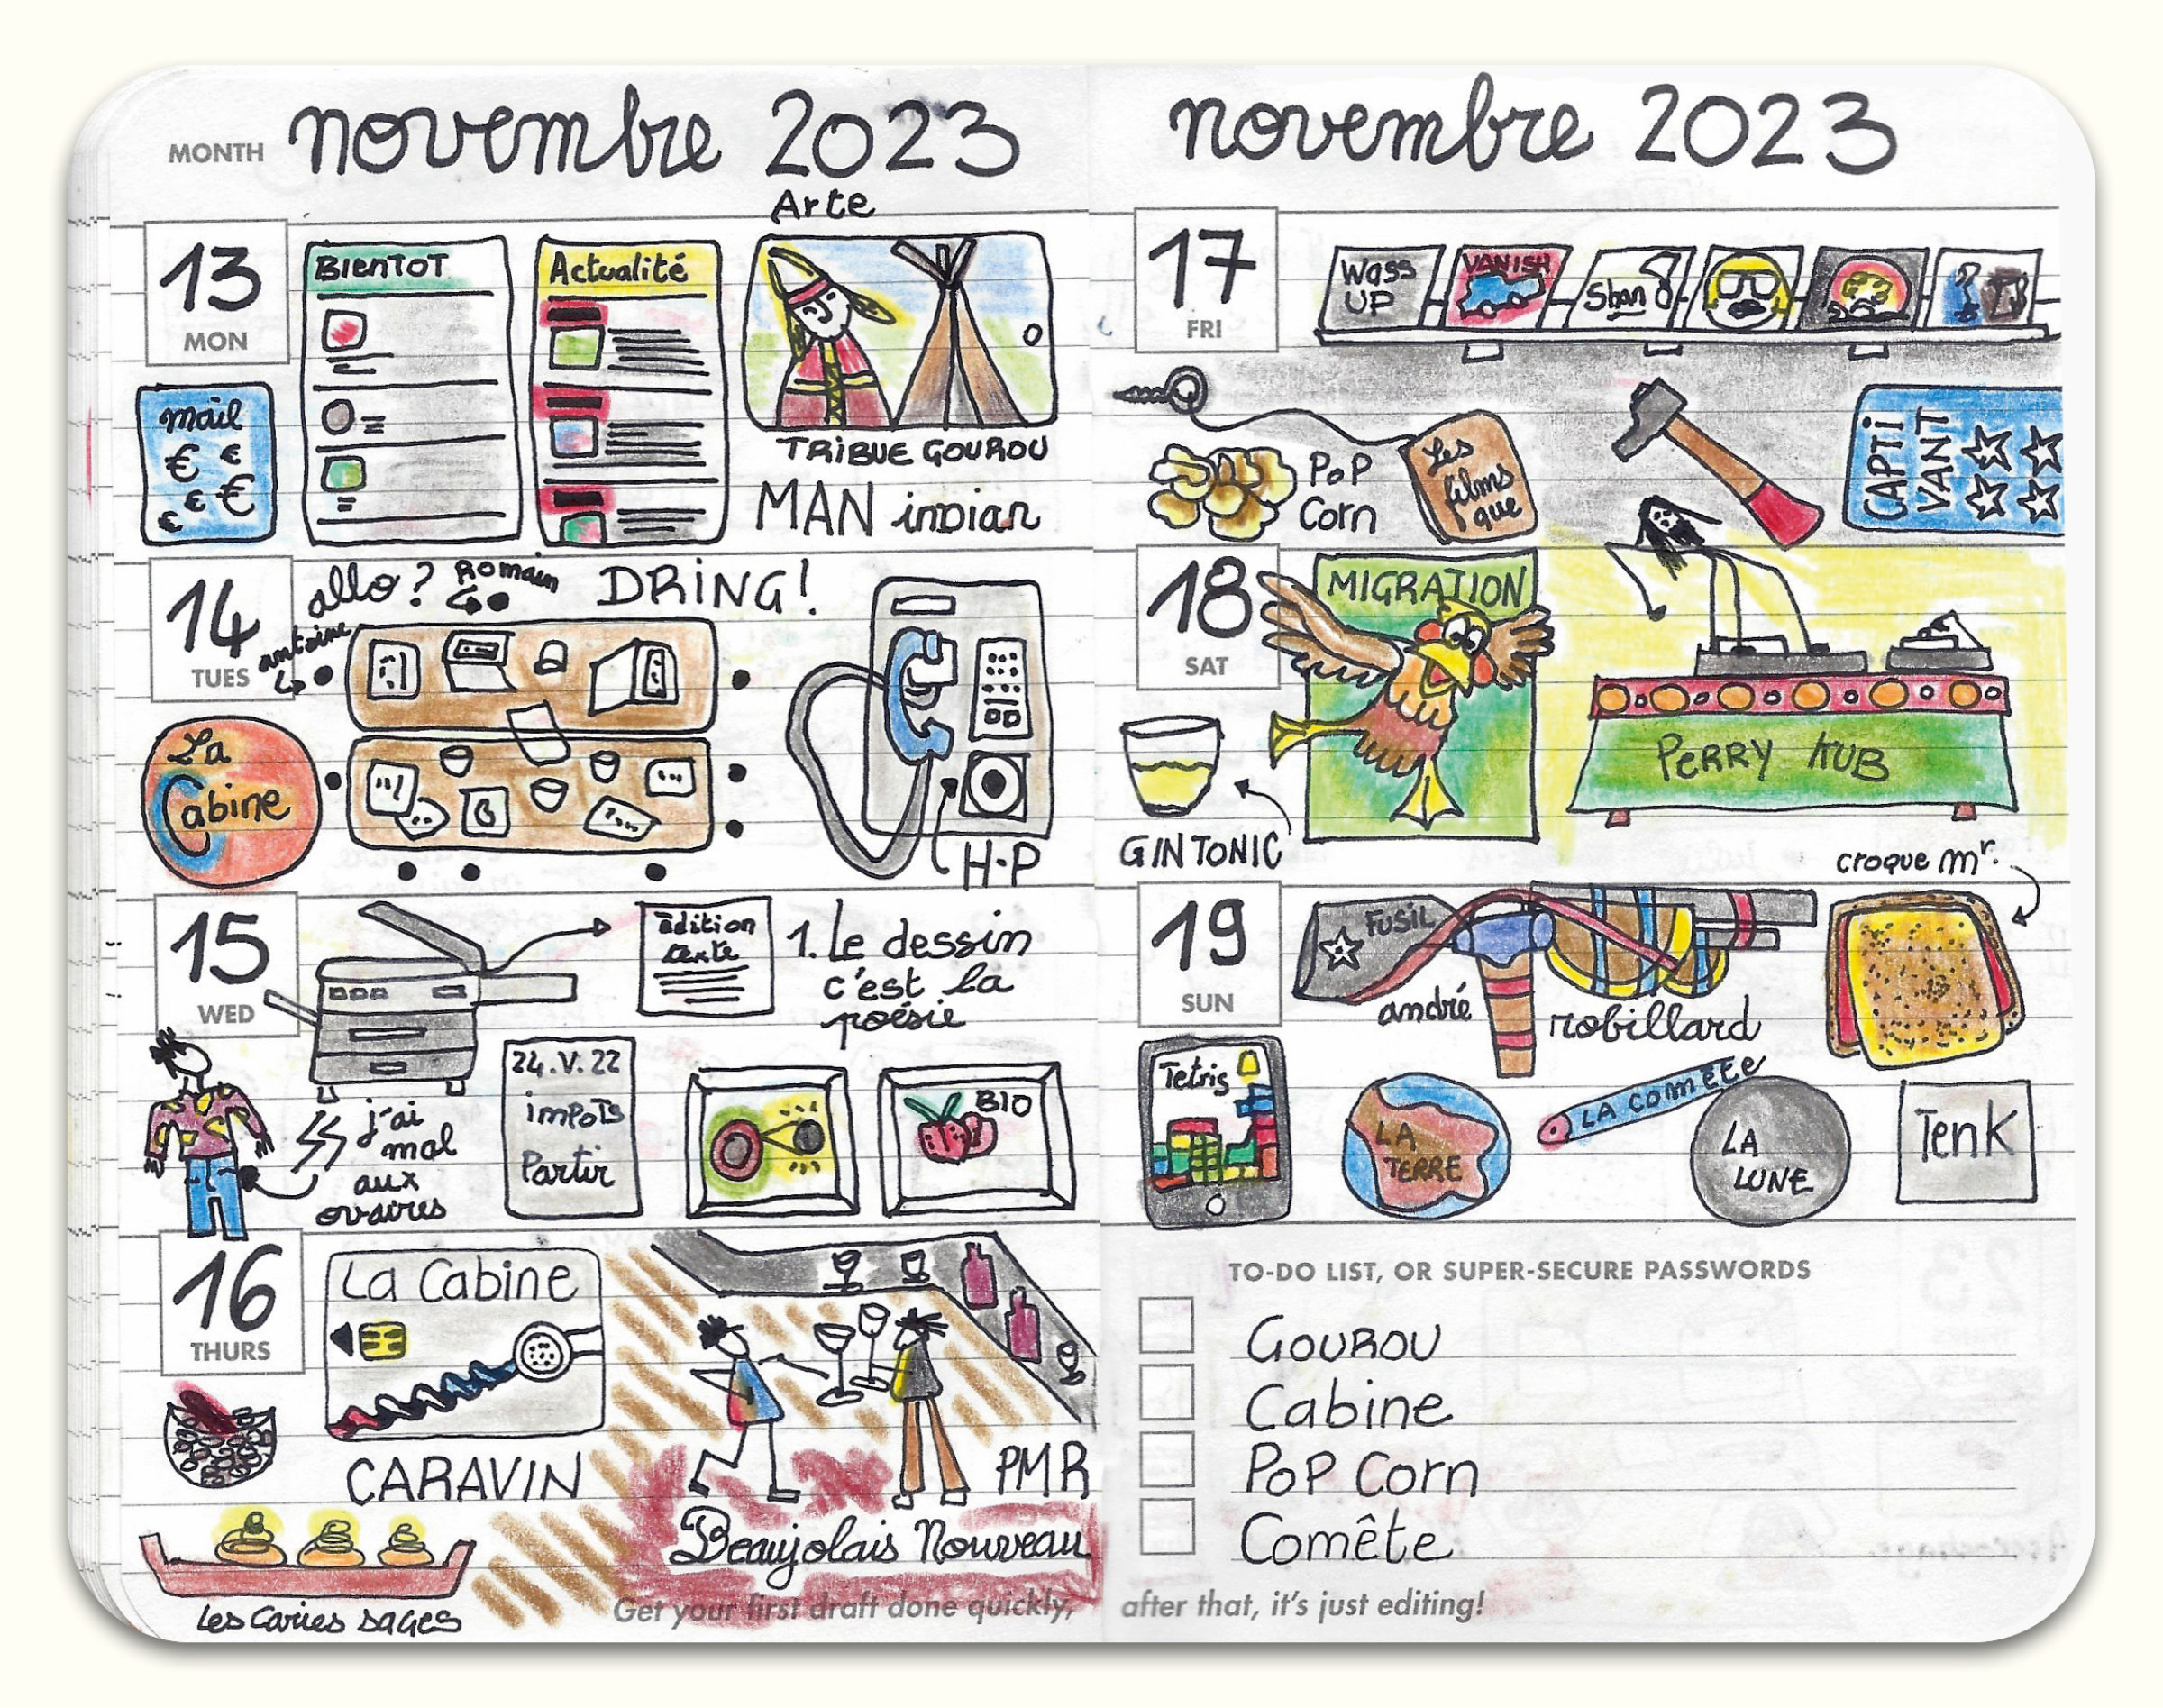 MONTH novembre 2023
novembre 2023
13
MON
mail
€ €
€ €
€
BIENTOT
Actualité
Arte
TRIBUE GOUROU
MAN indian
14
TUES
allo?
Romain
DRING!
antoine
La
Cabine
H-P
15
WED
édition
texte
1. Le dessin
c'est la
poésie
j'ai
mal
aux
ovaires
24.V.22
impots
Partir
BIO
16
THURS
La Cabine
CARAVIN
PMR
Beaujolais Nouveau
Les Caries sages
Get your first draft done quickly,
17
FRI
Wass
UP
VANISH
Shan
POP
Corn
Les
films
que
CAPTI
VANT
18
SAT
MIGRATION
GIN TONIC
PERRY KUB
19
SUN
FUSIL
andré
robillard
croque mr.
Tetris
LA
TERRE
LA COMETE
LA
LUNE
Tenk
TO-DO LIST, OR SUPER-SECURE PASSWORDS
GOUROU
Cabine
POP Corn
Comête
after that, it's just editing!